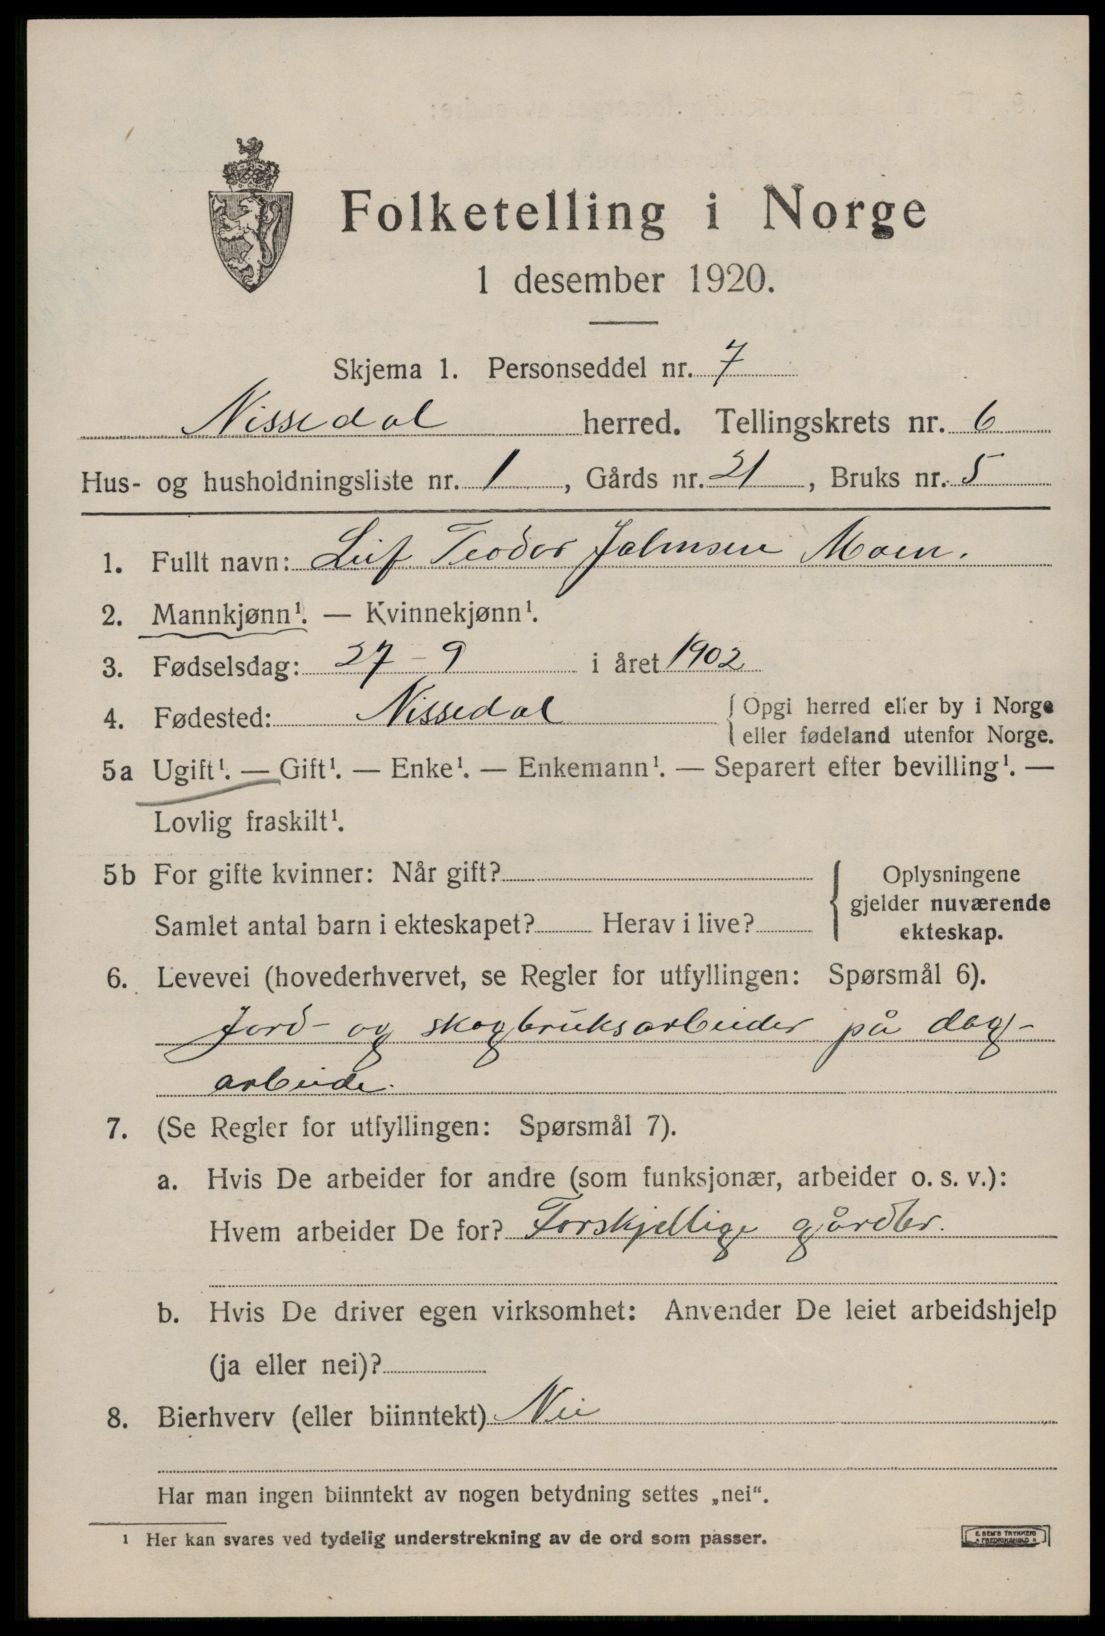 Folketelling i Norge
1 desember 1920.
Skjema 1. Personseddel nr. 7
Nissedal herred. Tellingskrets nr. 6
Hus- og husholdningsliste nr. 1, Gårds nr. 21, Bruks nr. 5
1. Fullt navn: Leif Teodor Jalmsen Moen.
2. Mannkjønn¹. — Kvinnekjønn¹.
3. Fødselsdag: 27-9 i året 1902
4. Fødested: Nissedal { Opgi herred eller by i Norge
eller fødeland utenfor Norge.
5a Ugift¹. — Gift¹. — Enke¹. — Enkemann¹. — Separert efter bevilling¹. —
Lovlig fraskilt¹.
5b For gifte kvinner: Når gift?
Samlet antal barn i ekteskapet? Herav i live?
{ Oplysningene
gjelder nuværende
ekteskap.
6. Levevei (hovederhvervet, se Regler for utfyllingen: Spørsmål 6).
Jord- og skogbruksarbeider på dag-
arbeide.
7. (Se Regler for utfyllingen: Spørsmål 7).
a. Hvis De arbeider for andre (som funksjonær, arbeider o. s. v.):
Hvem arbeider De for? Forskjellige gårdbr.
b. Hvis De driver egen virksomhet: Anvender De leiet arbeidshjelp
(ja eller nei)?
8. Bierhverv (eller biinntekt) Nei
Har man ingen biinntekt av nogen betydning settes „nei“.
¹ Her kan svares ved tydelig understrekning av de ord som passer.
E. SEM'S TRYKKERI
FREDRIKSHALD